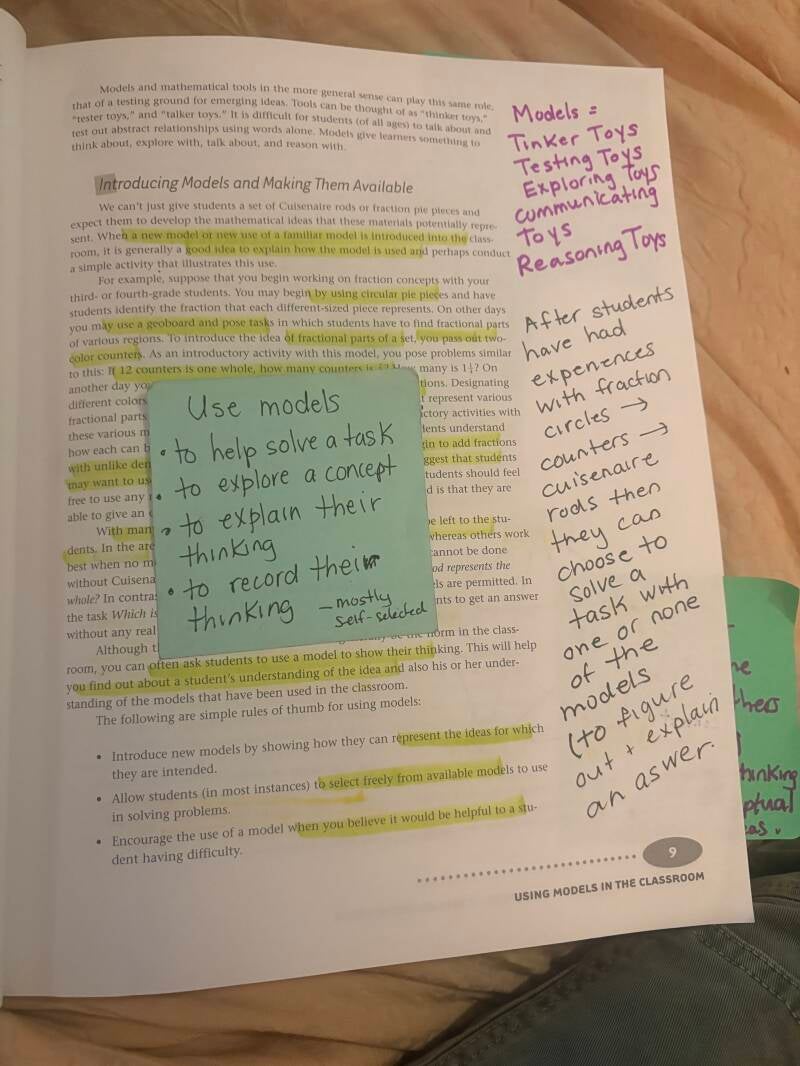 Models and mathematical tools in the more general sense can play this same role,
that of a testing ground for emerging ideas. Tools can be thought of as “thinker toys,”
“tester toys,” and “talker toys.” It is difficult for students (of all ages) to talk about and
test out abstract relationships using words alone. Models give learners something to
think about, explore with, talk about, and reason with.
Introducing Models and Making Them Available
We can't just give students a set of Cuisenaire rods or fraction pie pieces and
expect them to develop the mathematical ideas that these materials potentially repre-
sent. When a new model or new use of a familiar model is introduced into the class-
room, it is generally a good idea to explain how the model is used and perhaps conduct
a simple activity that illustrates this use.
For example, suppose that you begin working on fraction concepts with your
third- or fourth-grade students. You may begin by using circular pie pieces and have
students identify the fraction that each different-sized piece represents. On other days
you may use a geoboard and pose tasks in which students have to find fractional parts
of various regions. To introduce the idea of fractional parts of a set, you pass out two-
color counters. As an introductory activity with this model, you pose problems similar
to this: If 12 counters is one whole, how many counters is many is 1 On
another day yo tions. Designating
different colors represent various
fractional parts ctory activities with
these various m ents understand
how each can b in to add fractions
with unlike den ggest that students
may want to us tudents should feel
free to use any d is that they are
able to give an
With man e left to the stu-
dents. In the are whereas others work
best when no m cannot be done
without Cuisena od represents the
whole? In contra ls are permitted. In
the task Which is nts to get an answer
without any real
Although t norm in the class-
room, you can often ask students to use a model to show their thinking. This will help
you find out about a student's understanding of the idea and also his or her under-
standing of the models that have been used in the classroom.
The following are simple rules of thumb for using models:
• Introduce new models by showing how they can represent the ideas for which
they are intended.
• Allow students (in most instances) to select freely from available models to use
in solving problems.
• Encourage the use of a model when you believe it would be helpful to a stu-
dent having difficulty.
9
USING MODELS IN THE CLASSROOM
Use models
• to help solve a task
• to explore a concept
• to explain their
thinking
• to record their
thinking – mostly
self-selected
Models =
Tinker Toys
Testing Toys
Exploring Toys
Communicating
Toys
Reasoning Toys
After students
have had
experiences
with fraction
circles →
counters →
cuisenaire
rods then
they can
choose to
solve a
task with
one or none
of the
models
(to figure
out + explain
an aswer.
ne
thers
hinking
ptual
as.